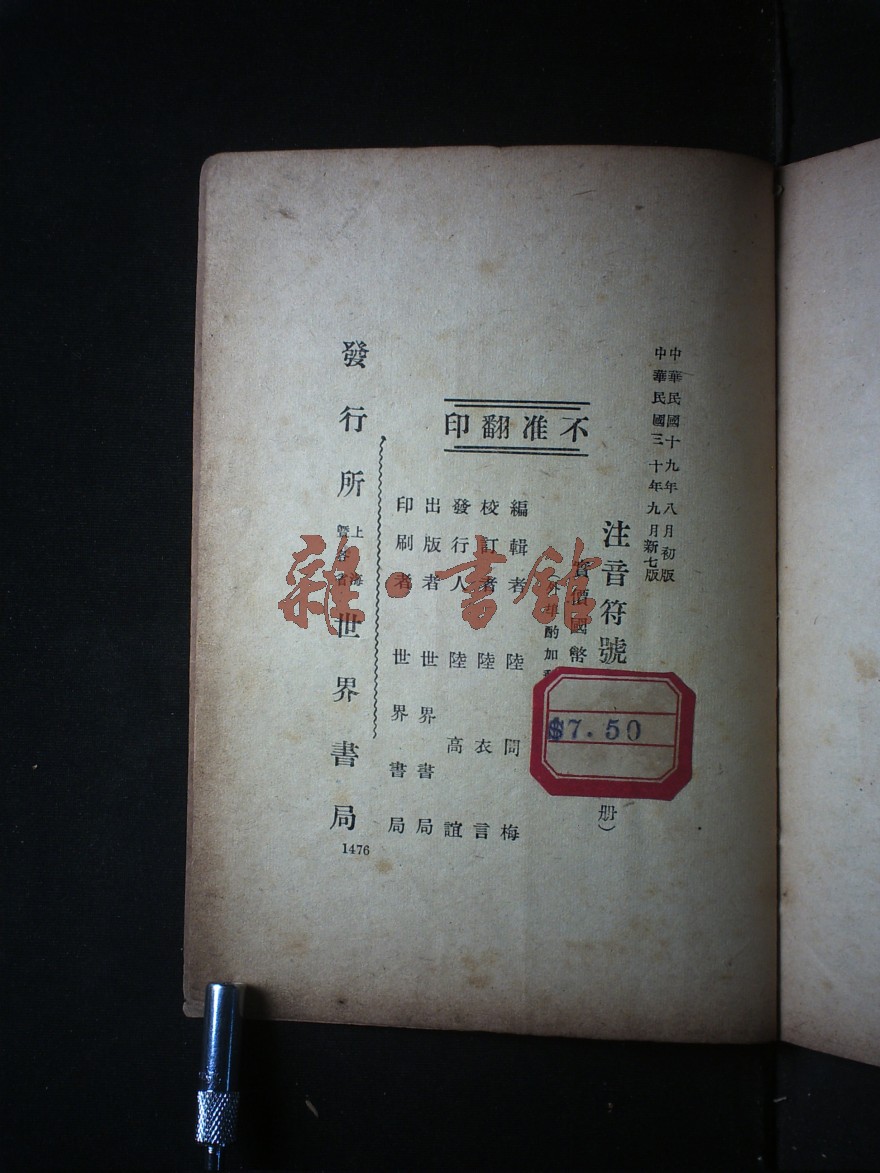 中華民國十九年八月初版
中華民國三十年九月新七版
注音符號
冊）
實價國幣
$7.50
（外埠酌加
不准翻印
編輯者 陸問梅
校訂者 陸衣言
發行人 陸高誼
出版者 世界書局
印刷者 世界書局
發行所 上海暨各省 世界書局
1476
雜·書館